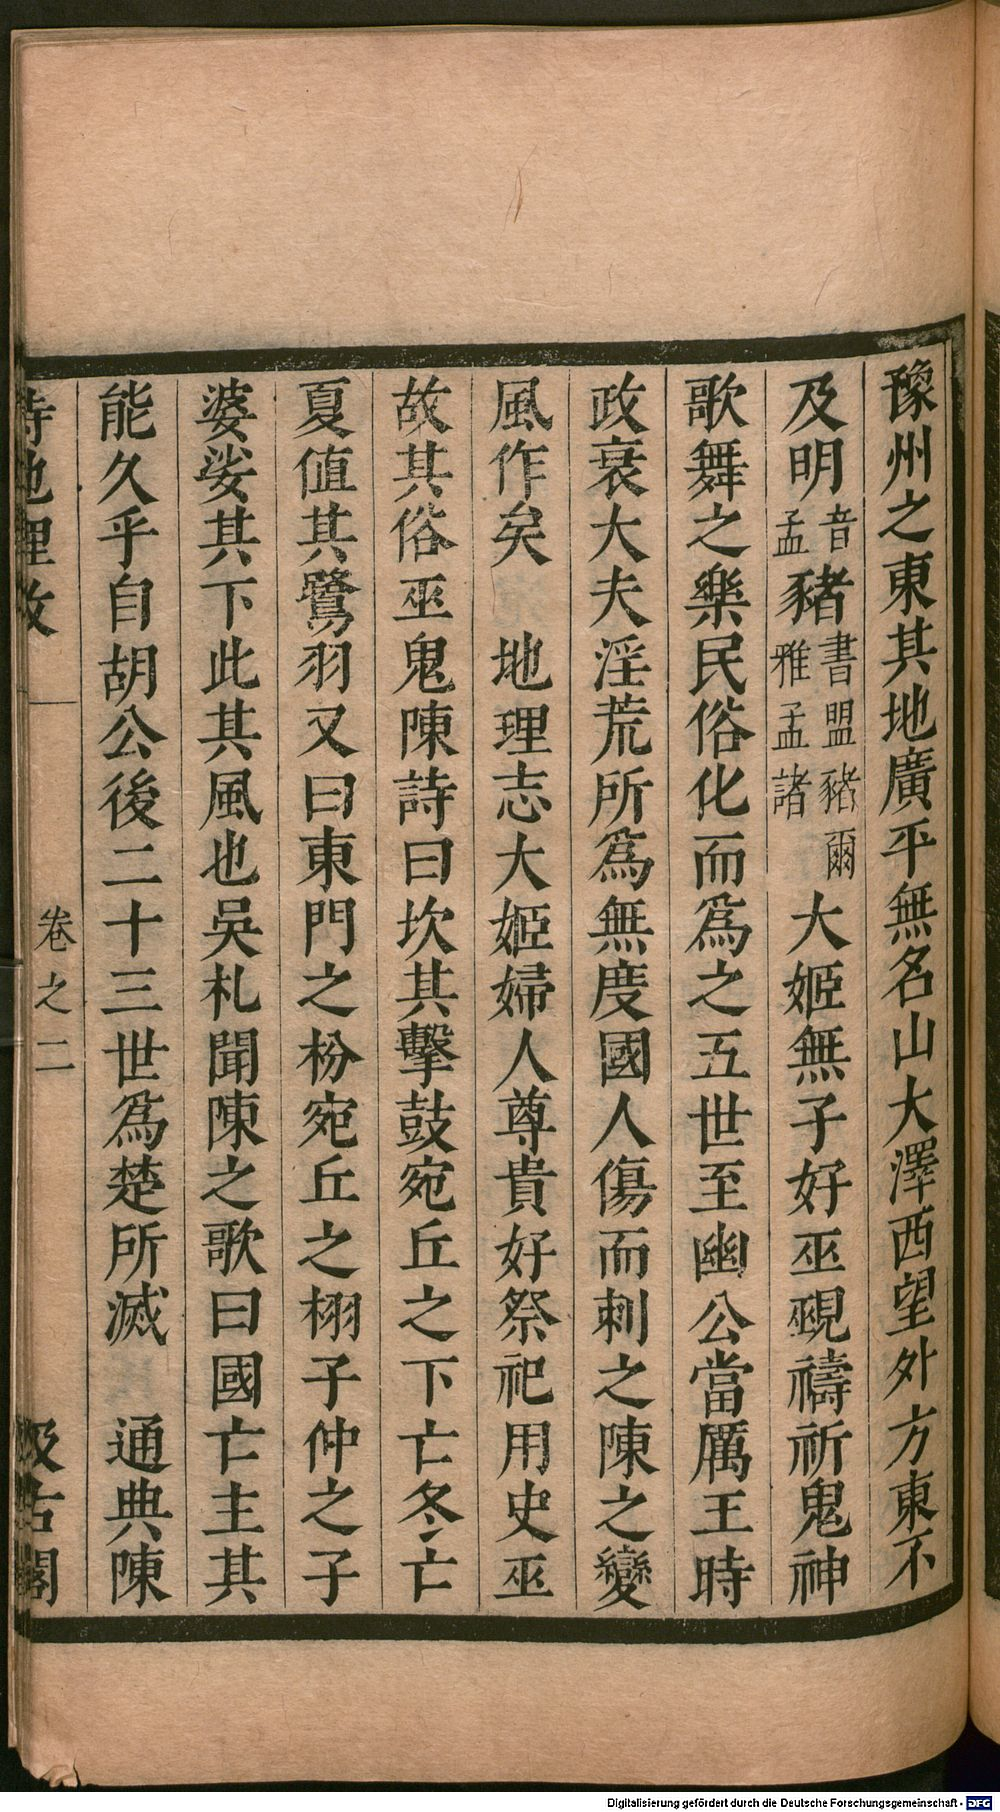 豫州之東其地廣平無名山大澤西望外方東不
及明音孟豬書盟豬爾雅孟諸　大姬無子好巫覡禱祈鬼神
歌舞之樂民俗化而爲之五世至幽公當厲王時
政衰大夫淫荒所爲無度國人傷而刺之陳之變
風作矣　地理志大姬婦人尊貴好祭祀用史巫
故其俗巫鬼陳詩曰坎其擊鼓宛丘之下亡冬亡
夏值其鷺羽又曰東門之枌宛丘之栩子仲之子
婆娑其下此其風也吳札聞陳之歌曰國亡主其
能久乎自胡公後二十三世爲楚所滅　通典陳
詩地理攷　卷之二　汲古閣
Digitalisierung gefördert durch die Deutsche Forschungsgemeinschaft - DFG